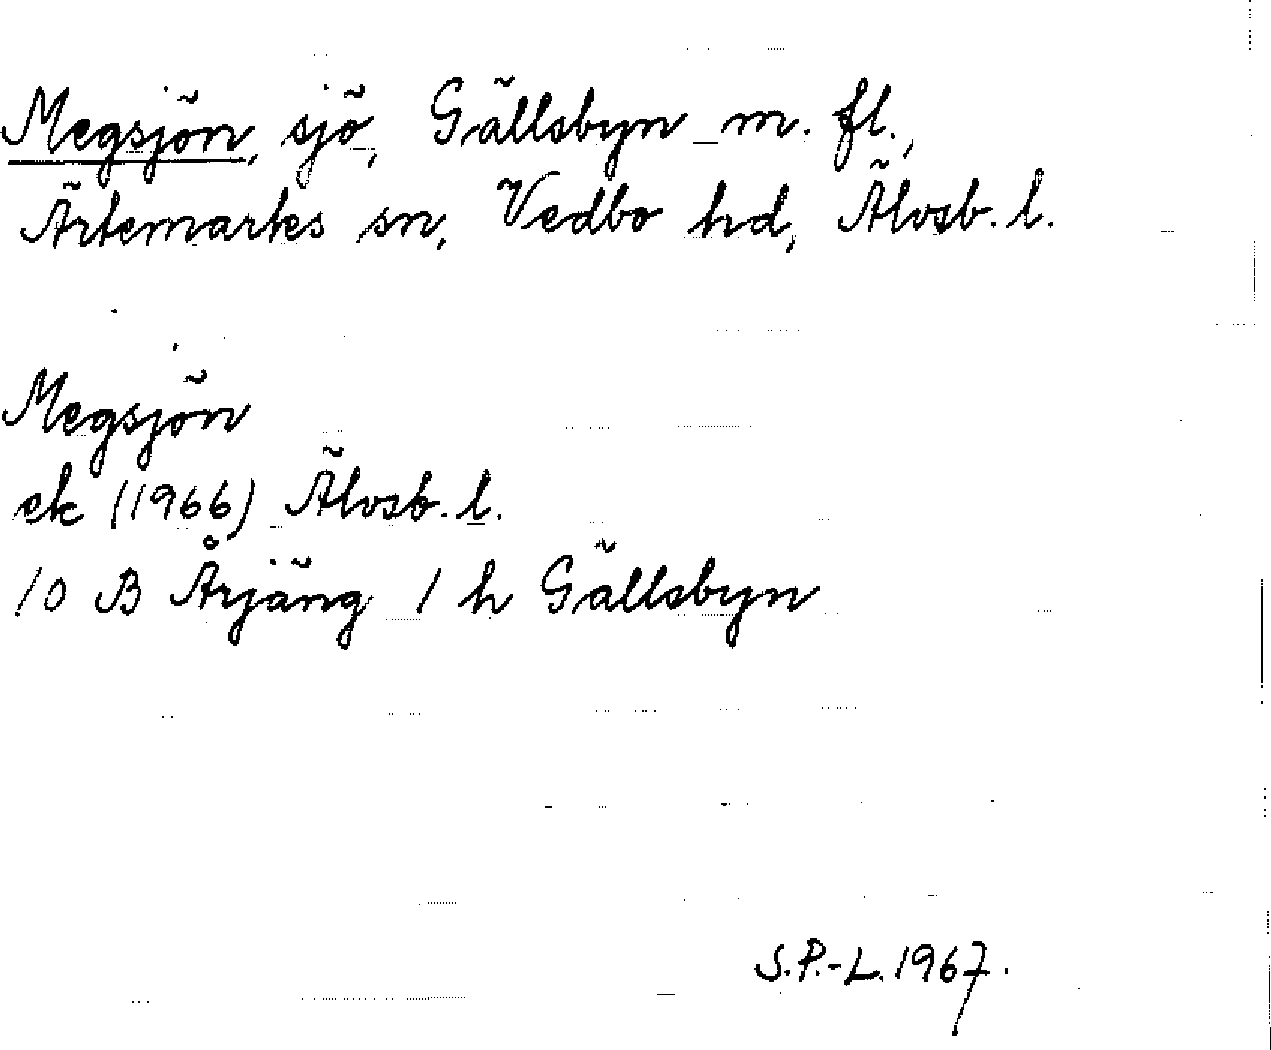 Megsjön, sjö, Gällsbyn m. fl.,
Ärtemarks sn, Vedbo hd, Älvsb. l.
Megsjön
ek (1966) Älvsb. l.
10 B Årjäng 1 h Gällsbyn
S.P.-L. 1967.